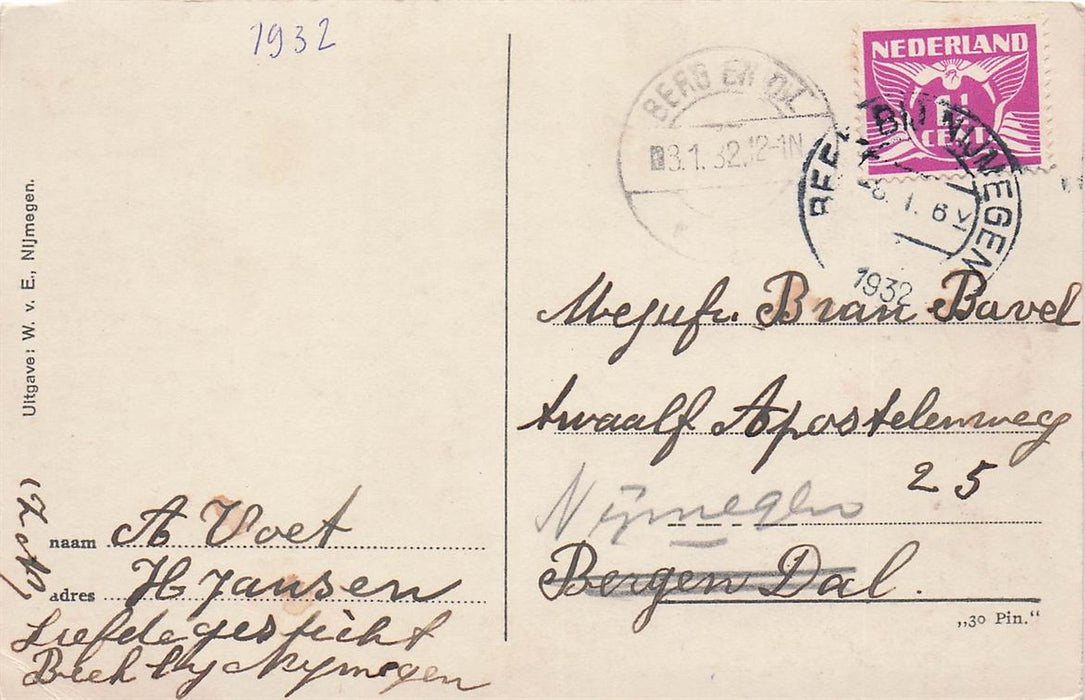 1932
NEDERLAND
1½
CENT
BERG EN DAL
3.1.32.12-1N
BEEK BIJ NIJMEGEN
1932
Uitgave: W. v. E., Nijmegen.
Mejufr. B van Bavel
twaalf Apostelenweg
25
Nijmegen
Bergen Dal.
„30 Pin.“
naam A Voet
adres H Jansen
Liefdegesticht
Beek by Nymegen